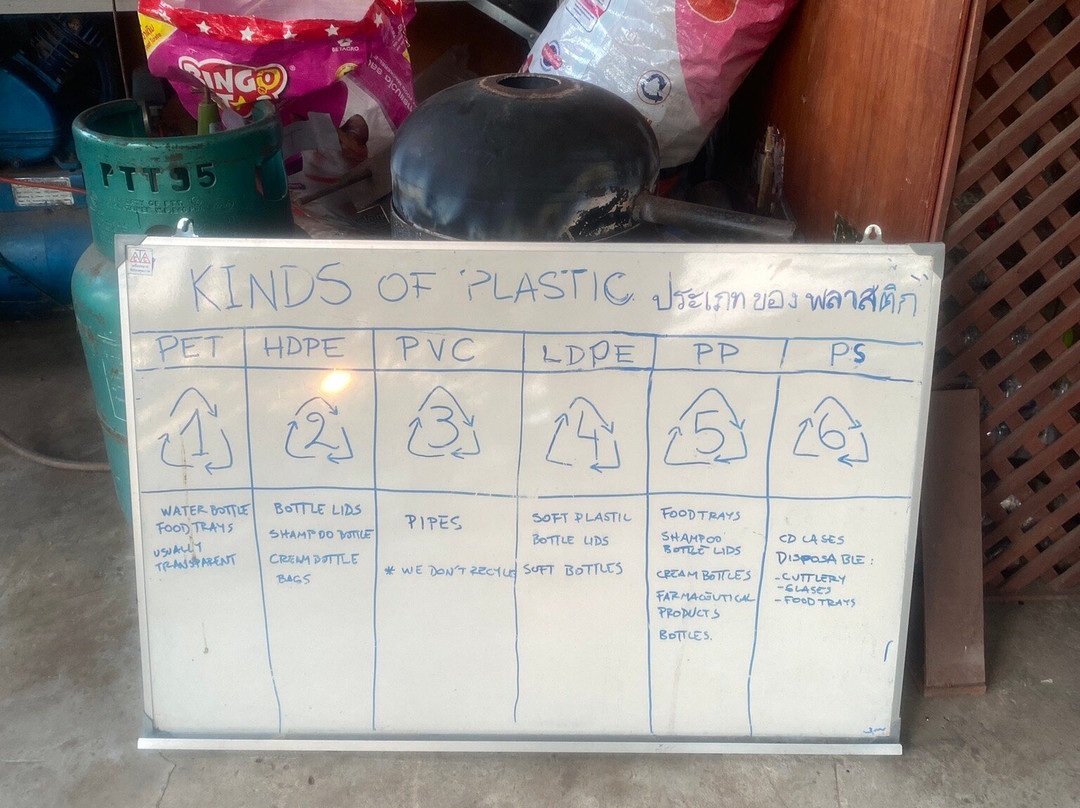 BINGO
BETAGRO
PTT95
KINDS OF PLASTIC ประเภทของ พลาสติก
PET HDPE PVC LDPE PP PS
1 2 3 4 5 6
WATER BOTTLE
FOOD TRAYS
USUALLY
TRANSPARENT
BOTTLE LIDS
SHAMPOO BOTTLE
CREAM BOTTLE
BAGS
PIPES
* WE DON'T RECYLE
SOFT PLASTIC
BOTTLE LIDS
SOFT BOTTLES
FOOD TRAYS
SHAMPOO
BOTTLE LIDS
CREAM BOTTLES
FARMACEUTICAL
PRODUCTS
BOTTLES.
CD CASES
DISPOSABLE:
-CUTTLERY
-GLASES
-FOOD TRAYS